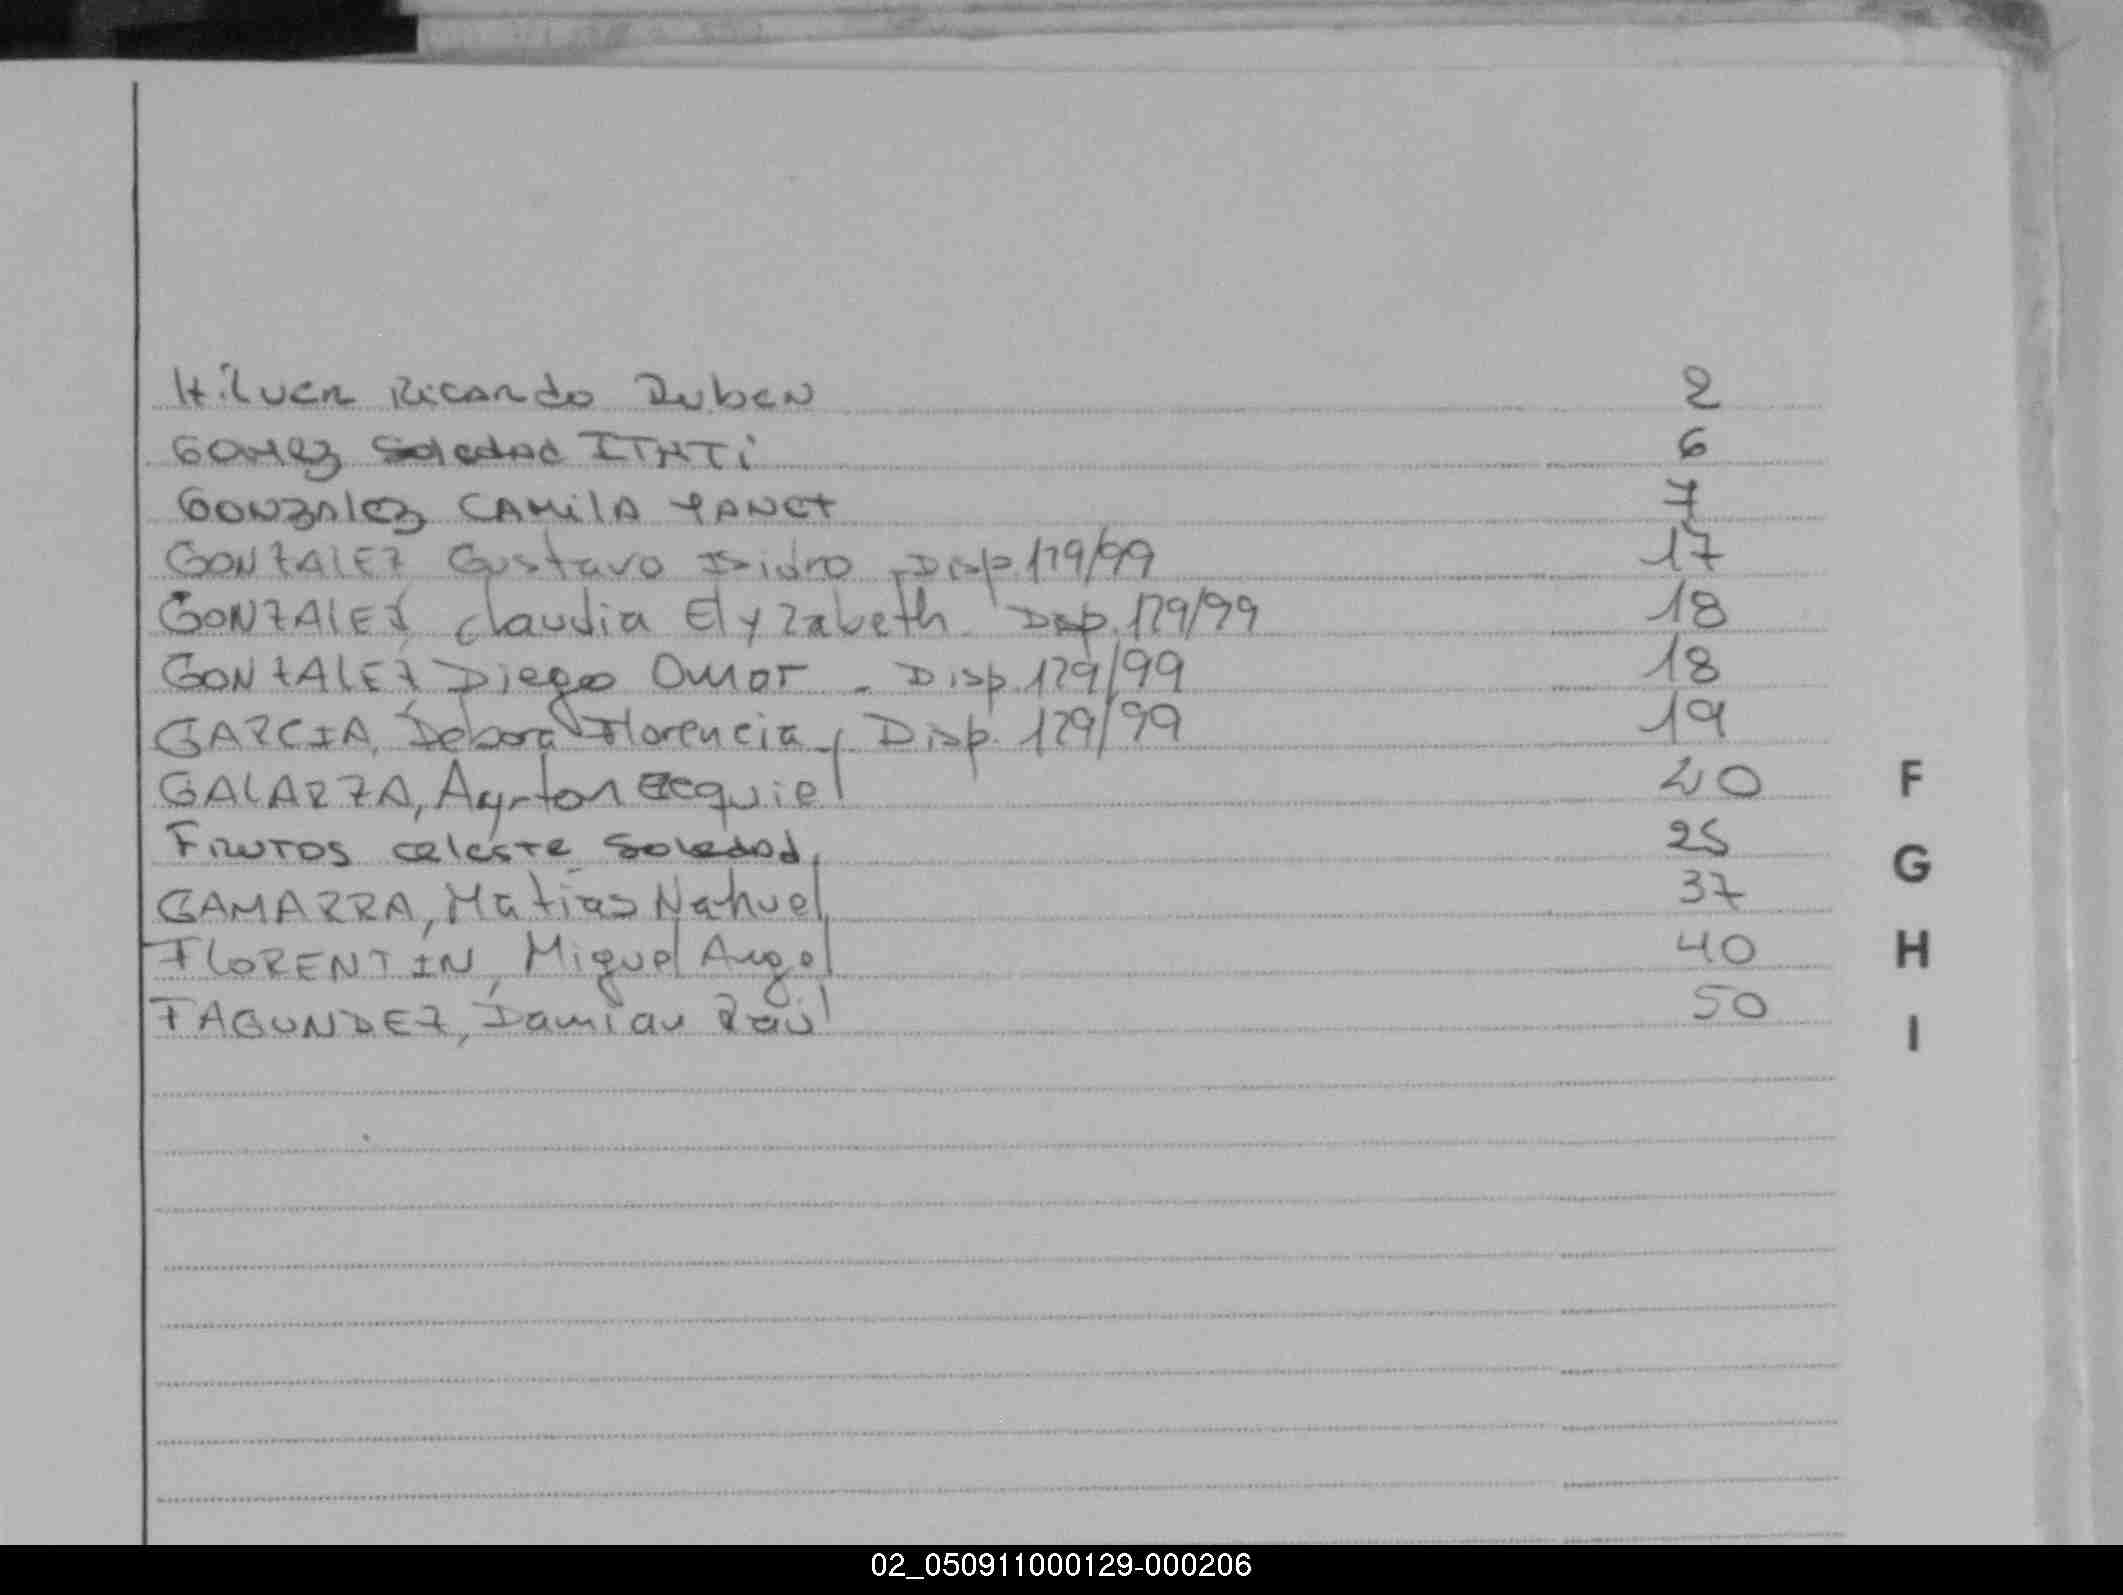 Hilver Ricardo Ruben 2
Gomez Soledad ITATI 6
Gonzalez CAMILA YANET 7
GONZALEZ Gustavo Isidro - Disp. 179/99 17
GONZALEZ, Claudia Elyzabeth - Disp. 179/99 18
GONZALEZ, Diego Omar - Disp. 179/99 18
GARCIA, Debora Florencia, Disp. 179/99 19
GALARZA, Ayrton Ezequiel 20
F
FRUTOS celeste Soledad, 25
G
GAMARRA, Matías Nahuel, 37
FLORENTÍN, Miguel Angel 40
H
FAGUNDEZ, Damian Raúl 50
I
02_050911000129-000206